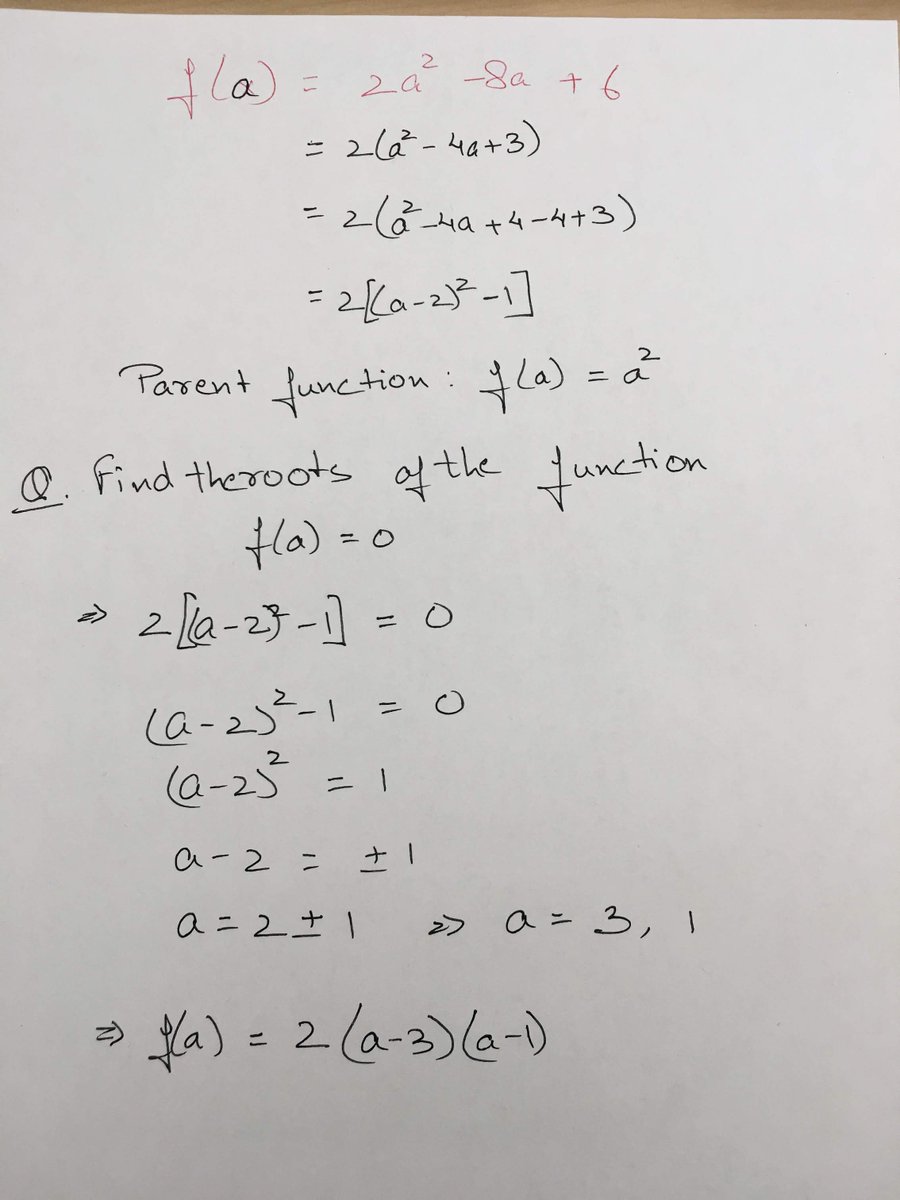 f(a) = 2a² -8a + 6
= 2(a² - 4a+3)
= 2(a² -4a +4-4+3)
= 2[(a-2)² -1]
Parent function : f(a) = a²
Q. Find the roots of the function
f(a) = 0
⇒ 2[(a-2)² -1] = 0
(a-2)² -1 = 0
(a-2)² = 1
a - 2 = ± 1
a = 2 ± 1 ⇒ a = 3, 1
⇒ f(a) = 2(a-3)(a-1)